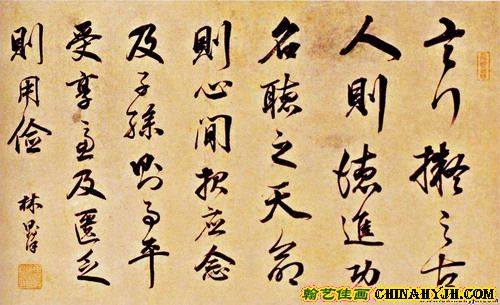 言行擬之古
人則德進功
名聽之天命
則心閒報應念
及子孫則事平
受享慮及匱乏
則用儉
林則徐
翰艺佳画 CHINAHYJH.COM